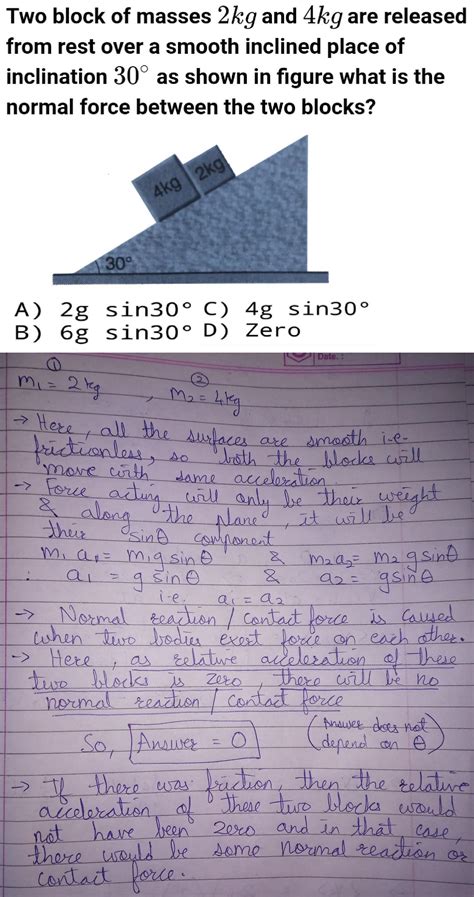 Two block of masses 2kg and 4kg are released
from rest over a smooth inclined place of
inclination 30° as shown in figure what is the
normal force between the two blocks?
4kg 2kg
30°
A) 2g sin30° C) 4g sin30°
B) 6g sin30° D) Zero
Date. :
① ②
m₁ = 2kg , m₂ = 4kg
→ Here, all the surfaces are smooth i.e.
frictionless, so both the blocks will
move with same acceleration.
→ Force acting will only be their weight
& along the plane, it will be
their sinθ component
m₁ a₁ = m₁g sinθ & m₂a₂ = m₂ g sinθ
∴ a₁ = g sinθ & a₂ = gsinθ
i.e. a₁ = a₂
→ Normal reaction / contact force is caused
when two bodies exert force on each other.
→ Here, as relative acceleration of these
two blocks is zero, there will be no
normal reaction / contact force
So, Answer = 0 (Answer does not
depend on θ)
→ If there was friction, then the relative
acceleration of these two blocks would
not have been zero and in that case,
there would be some normal reaction or
contact force.